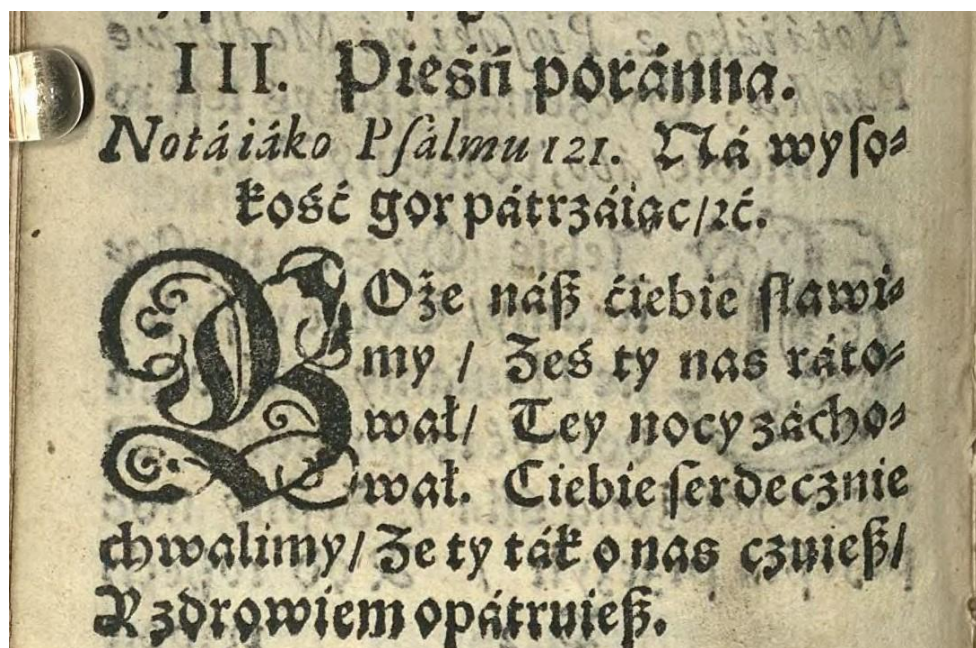 III. Pieśń poránna.
Notá iáko Pſálmu 121. Ná wyſo⸗
kość gor pátrzáiąc/ ꝛć.
BOże náß ćiebie ſławi⸗
my / Żeś ty nas ráto⸗
wał/ Tey nocy zácho⸗
wał. Ciebie ſerdecznie
chwalimy/ Że ty ták o nas czuieß/
Y zdrowiem opátruieß.